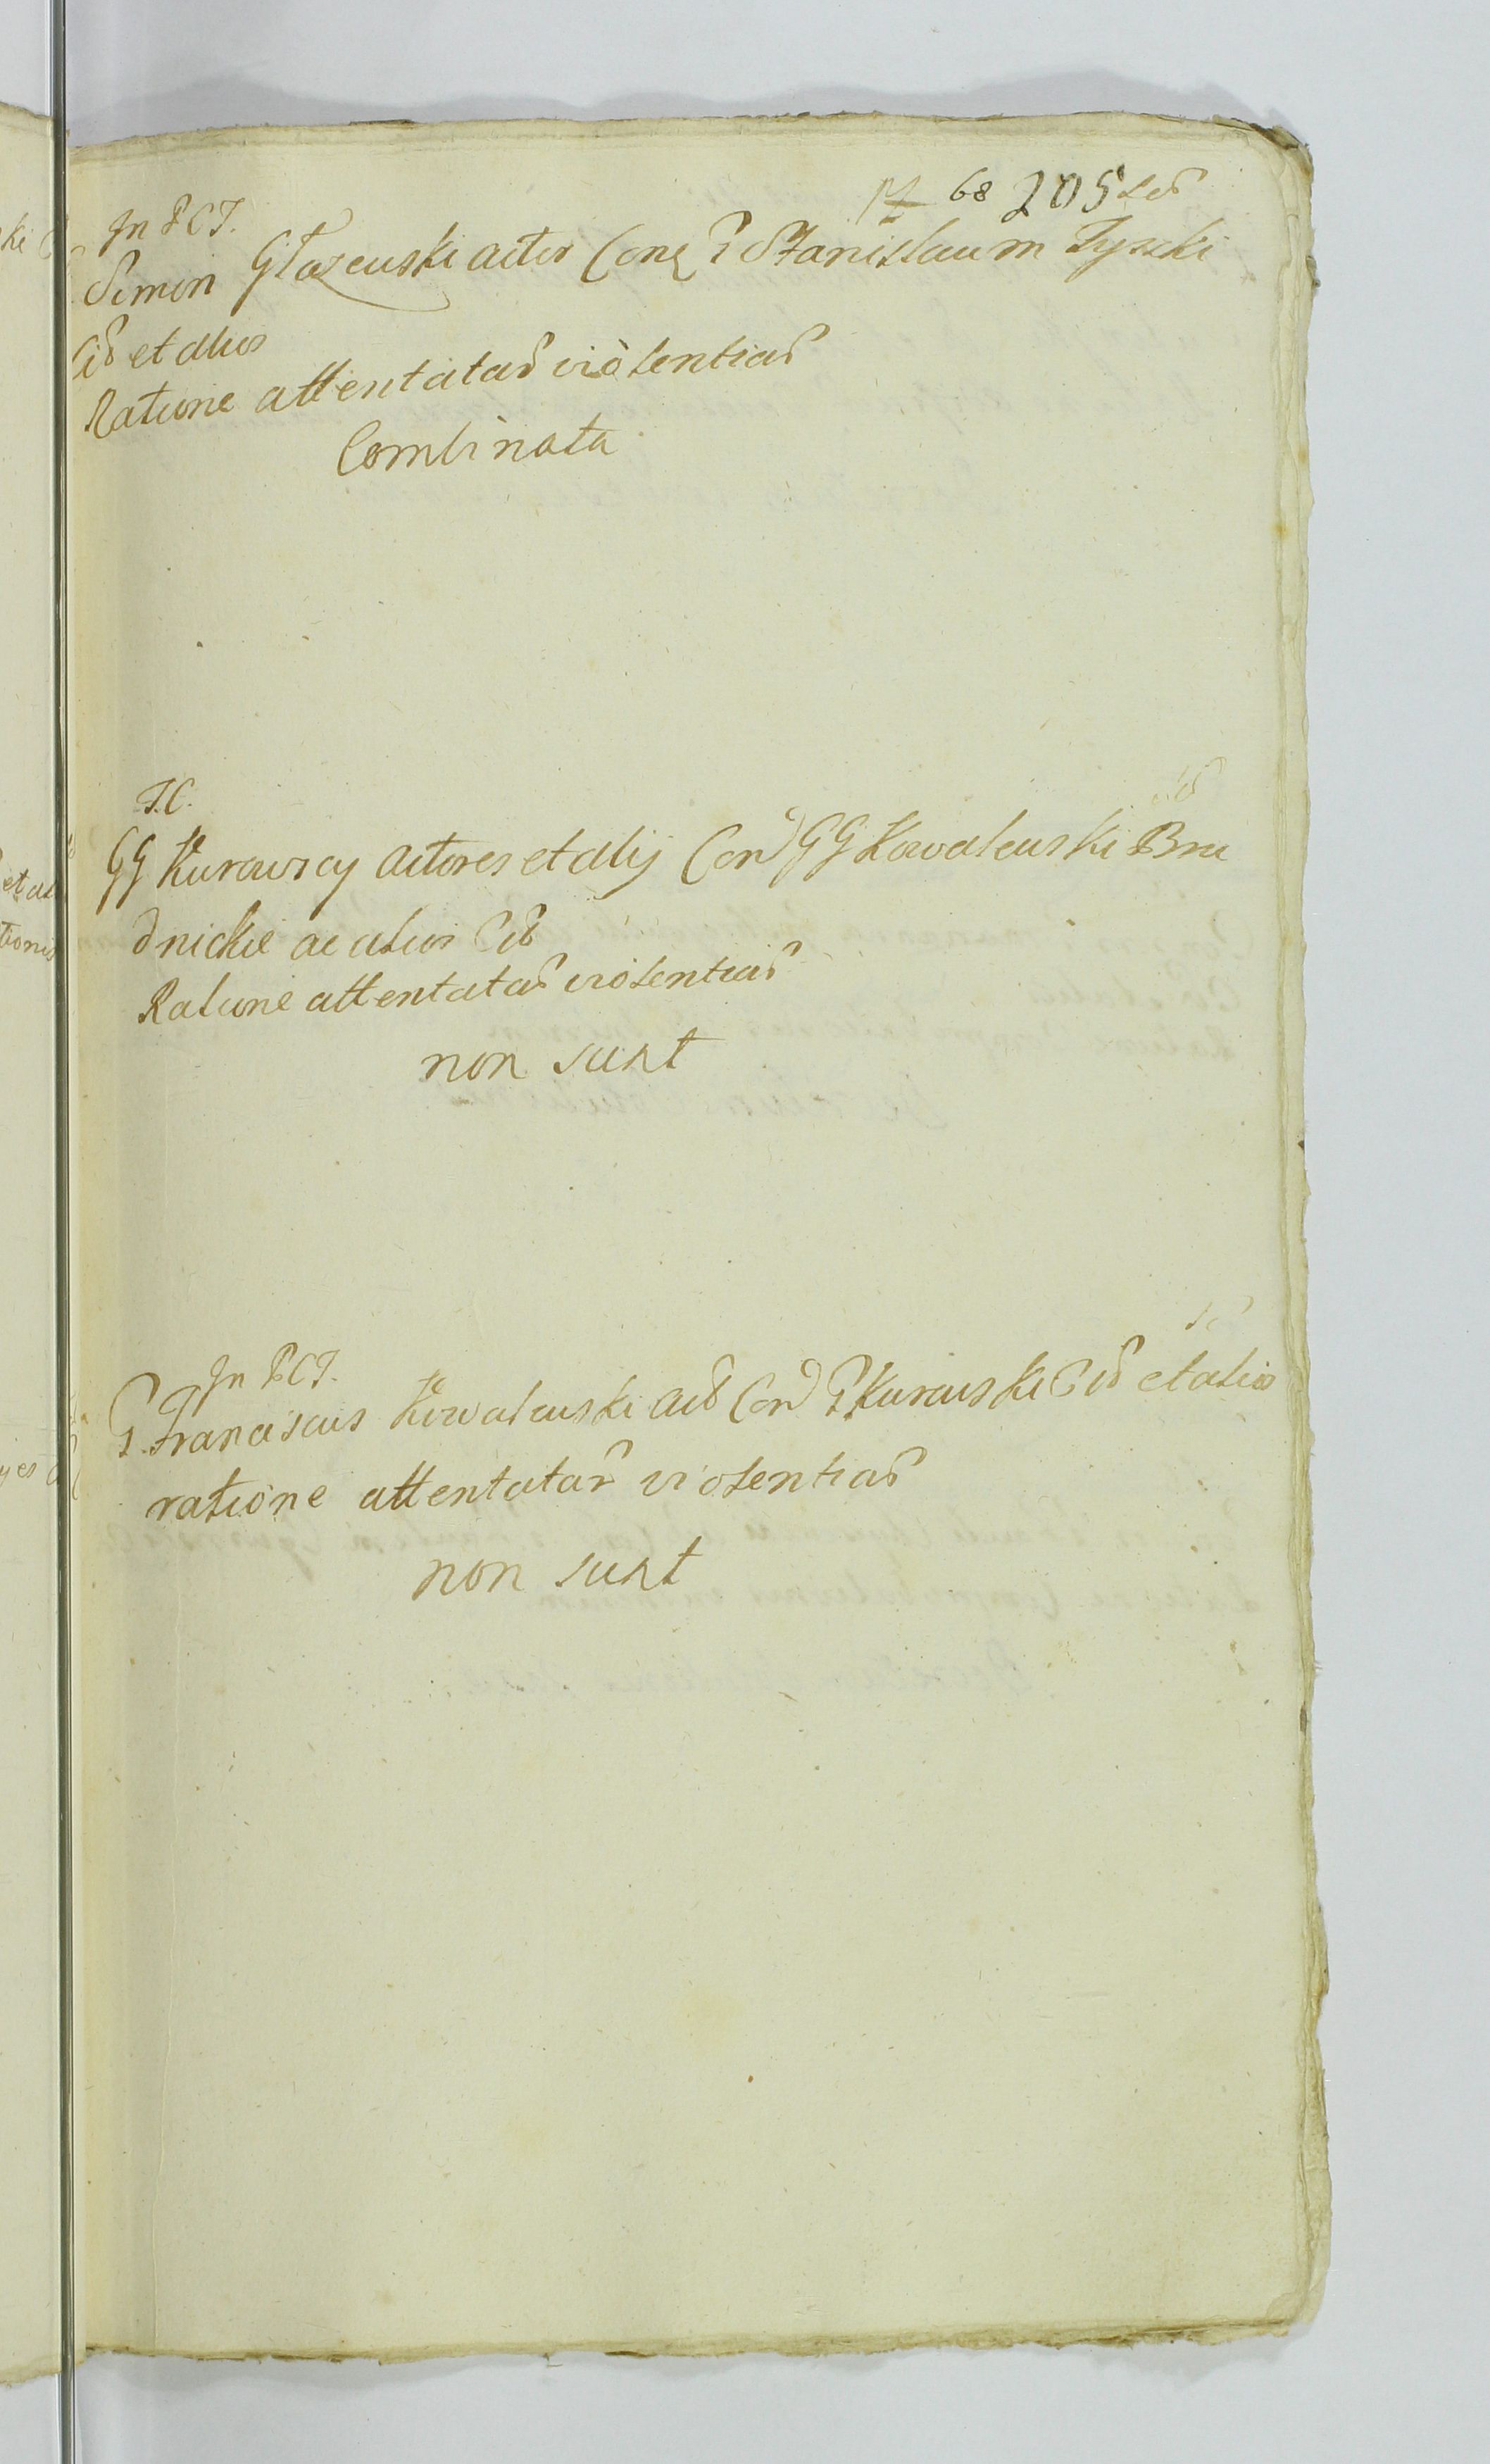 68 205
In P C T.
Simon Głazewski actor Con G Stanislaum Tyszki
Cit et alios
Ratione attentatar violentiar
Combinata
T.C.
GG Kurawscy actores et alij Con GG Kowalewski Bru
dnickie ac alios Cit
Ratione attentatar violentiar
non sunt
In P C T.
G. Franciscus Kowalewski act Con G Kurawski Cit et alios
ratione attentatar violentiar
non sunt